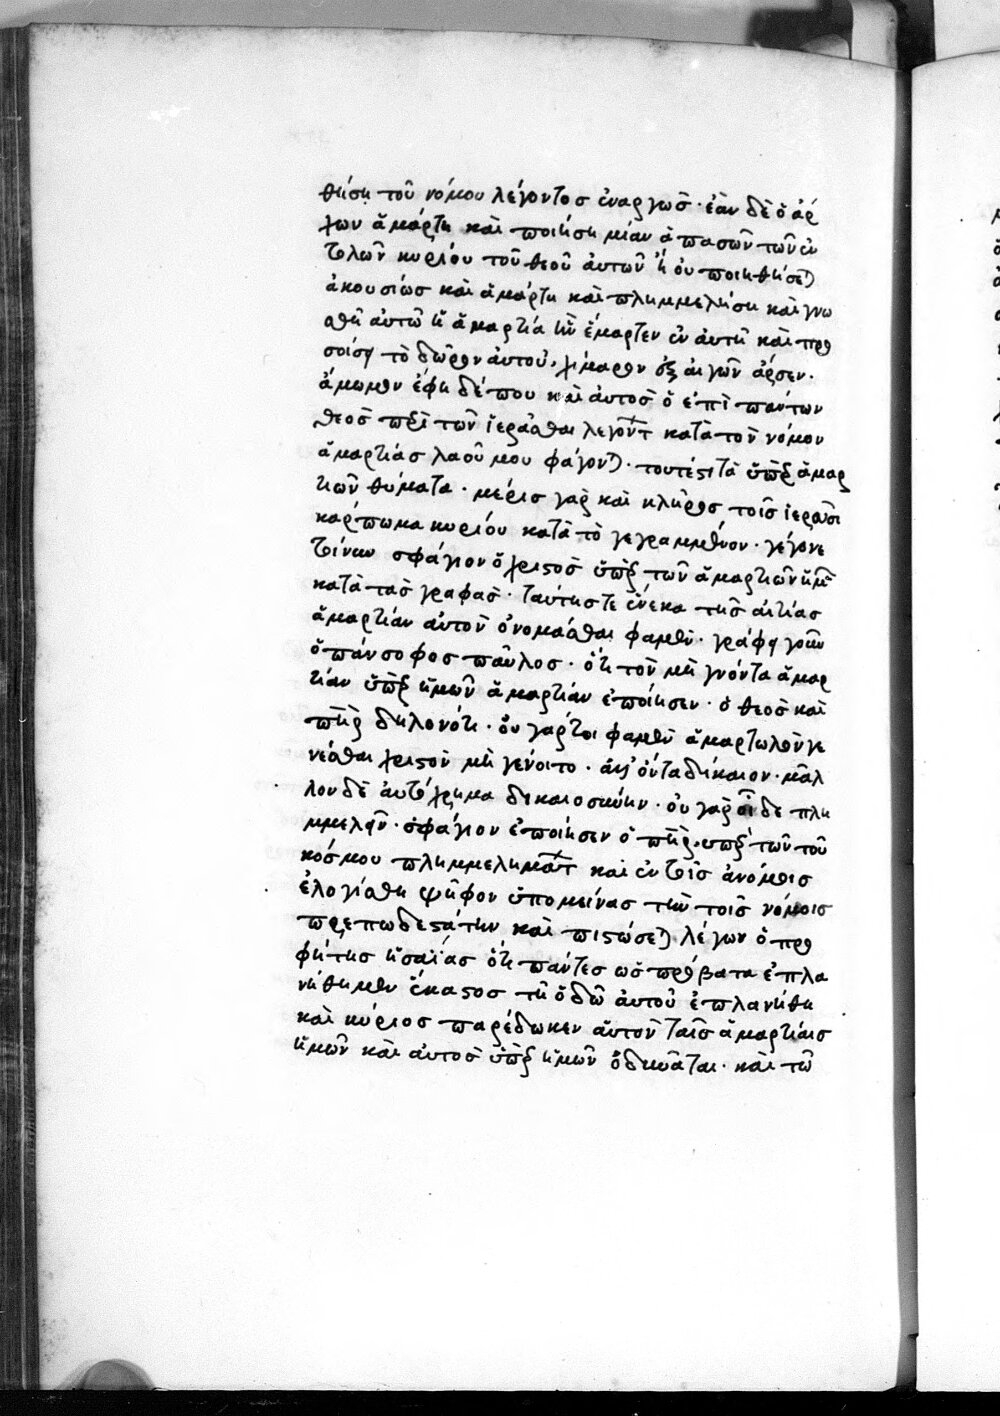 θήση τοῦ νόμου λέγοντος ἐναργῶς· ἐὰν δὲ ὁ ἄρ
χων ἁμάρτη καὶ ποιήση μίαν ἀπασῶν τῶν ἐν
τολῶν κυρίου τοῦ θεοῦ αὐτῶν ἣ οὐ ποιηθήσεται
ἀκουσίως καὶ ἁμάρτη καὶ πλημμελήση καὶ γνω
σθῆ αὐτῶ ἡ ἁμαρτία ἣν ἥμαρτεν ἐν αὐτῆ καὶ προ
σοίσει τὸ δῶρον αὐτοῦ, χίμαρον ἐξ αἰγῶν ἄρσεν.
ἄμωμον ἔφη δέ που καὶ αὐτὸς ὁ ἐπὶ πάντων
θεὸς περὶ τῶν ἱερᾶσθαι λεγόντ κατὰ τὸν νόμον
ἁμαρτίας λαοῦ μου φάγονται· τουτέστι τὰ ὑπὲρ ἁμαρ
τιῶν θύματα· μερὶς γὰρ καὶ κλῆρος τοῖς ἱεροῖσι
κάρπωμα κυρίου κατὰ τὸ γεγραμμένον· γέγονε
τοίνυν σφάγιον ὁ χριστὸς ὑπὲρ τῶν ἁμαρτιῶν ἡμῶν
κατὰ τὰς γραφάς· ταύτης τε ἕνεκα τῆς αἰτίας
ἁμαρτίαν αὐτὸν ὀνομάσθαι φαμὲν· γράφει γοῦν
ὁ πάνσοφος παῦλος· ὅτι τὸν μὴ γνόντα ἁμαρ
τίαν ὑπὲρ ἡμῶν ἁμαρτίαν ἐποίησεν· ὁ θεὸς καὶ
πῆρ δηλονότι· οὐ γάρ τοι φαμὲν ἁμαρτωλὸν γε
νέσθαι χριστὸν μὴ γένοιτο· ἀλλ' ὄντα δίκαιον· μᾶλ
λον δὲ αὐτόχρημα δικαιοσύνην· οὐ γὰρ οἶδε πλη
μμελεῖν· σφάγιον ἐποίησεν ὁ πῆρ, ὑπὲρ τῶν τοῦ
κόσμου πλημμελημάτ καὶ ἐν τοῖς ἀνόμοις
ἐλογίσθη ψῆφον ὑπομείνας τὴν τοῖς νόμοις
πρεπωδεστάτην καὶ πιστώσεται λέγων ὁ προ
φήτης ἡσαΐας ὅτι πάντες ὡς πρόβατα ἐπλα
νήθημεν ἕκαστος τῆ ὁδῶ αὐτοῦ ἐπλανήθη
καὶ κύριος παρέδωκεν αὐτὸν ταῖς ἁμαρτίαις
ἡμῶν καὶ αὐτὸς ὑπὲρ ἡμῶν ὀδυνᾶται· καὶ τῶ